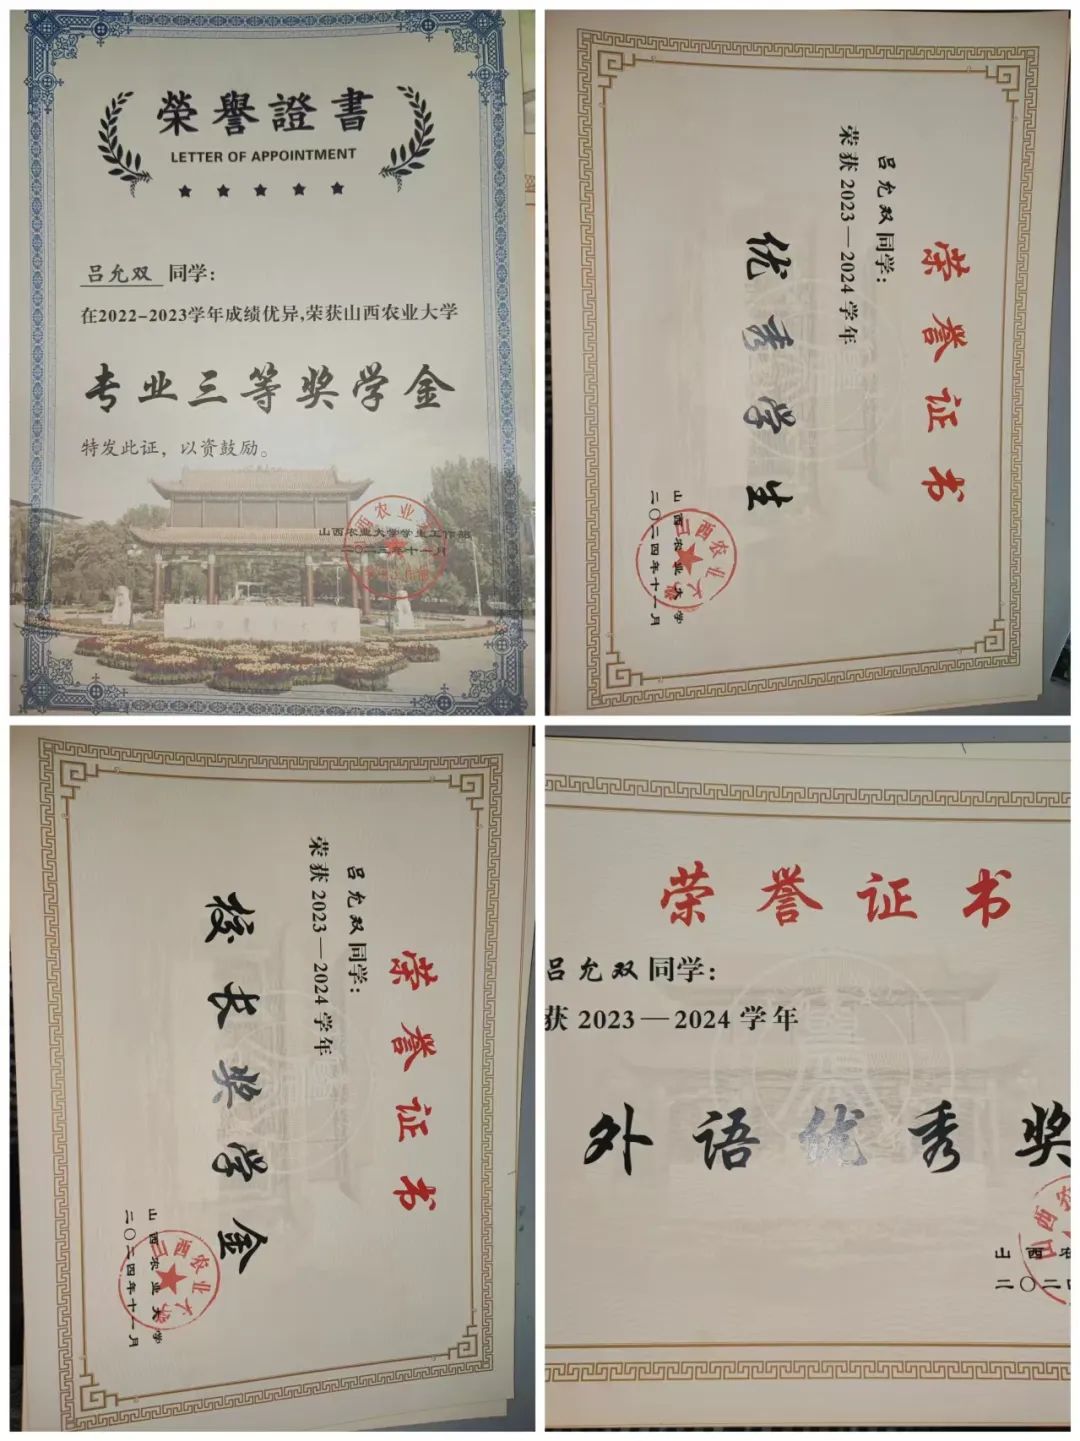 榮譽證書
LETTER OF APPOINTMENT
吕允双 同学：
在2022-2023学年成绩优异,荣获山西农业大学
专业三等奖学金
特发此证，以资鼓励。
山西农业大学学生工作部
二〇二三年十一月
荣誉证书
吕允双同学：
荣获2023—2024学年
优秀学生
山西农业大学
二〇二四年十一月
荣誉证书
吕允双同学：
荣获2023—2024学年
校长奖学金
山西农业大学
二〇二四年十一月
荣誉证书
吕允双同学：
获 2023—2024 学年
外语优秀奖
山西农
二〇二四